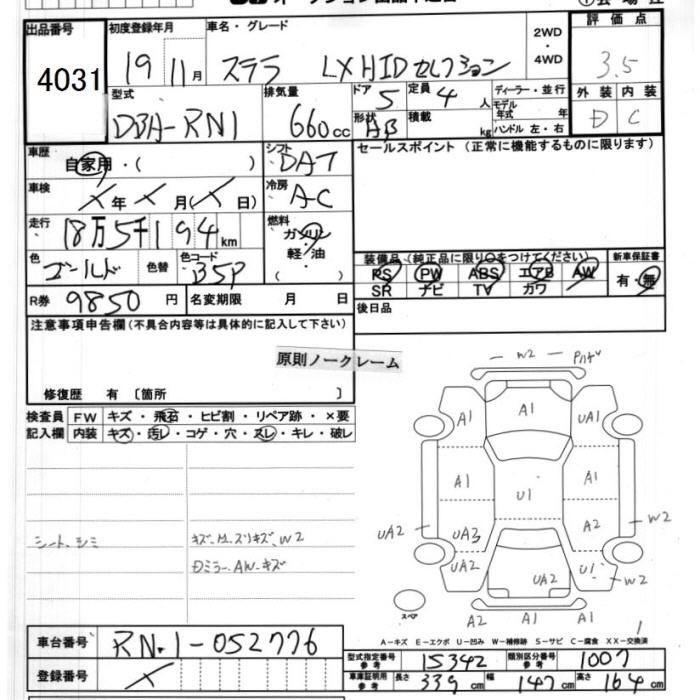 出品番号
4031
初度登録年月
19 11月
車名・グレード
ステラ LX HIDセレクション
2WD
・
4WD
評価点
3.5
型式
DBA-RN1
排気量
660cc
ドア 5
定員 4 人
形状 AB
積載 kg
ディーラー・並行
モデル年式 年
ハンドル 左・右
外装 内装
D C
車歴
自家用・( )
シフト
DAT
セールスポイント (正常に機能するものに限ります)
車検
X年X月(X日)
冷房
AC
走行
18万5千194km
燃料
ガソリン
軽油
( )
色
ゴールド
色替
色コード
B5P
装備品(純正品に限り○をつけてください)
PS PW ABS エアB AW
SR ナビ TV カワ
新車保証書
有・無
R券 9850円
名変期限 月 日
後日品
注意事項申告欄(不具合内容等は具体的に記入して下さい)
原則ノークレーム
修復歴 有 〔箇所 〕
検査員記入欄
FW キズ・飛石・ヒビ割・リペア跡・×要
内装 キズ・汚レ・コゲ・穴・スレ・キレ・破レ
シート、シミ
W2
Dミラー、AW、キズ
W2
A1
A1
UA1
A1
U1
A1
UA2
UA3
A2
W2
UA2
UA2
U1
W2
A2
A1
A1
スペア
A-キズ E-エクボ U-凹み W-補修跡 S-サビ C-腐食 XX-交換済
車台番号
RN1-052776
登録番号
X
型式指定番号 参考
15342
類別区分番号 参考
1007
車庫証明用 参考
長さ 339cm
幅 147cm
高さ 164cm